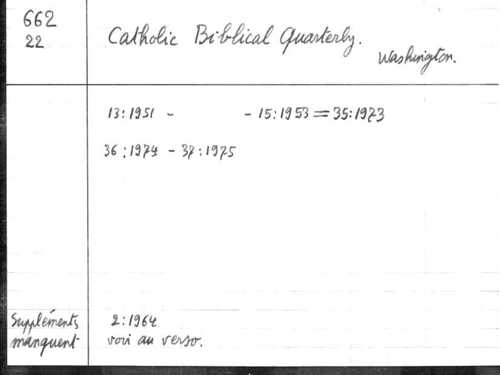 662
22
Catholic Biblical Quarterly.
Washington.
13:1951 - - 15:1953 = 35:1973
36:1974 - 37:1975
Suppléments 2:1964
manquent voir au verso.